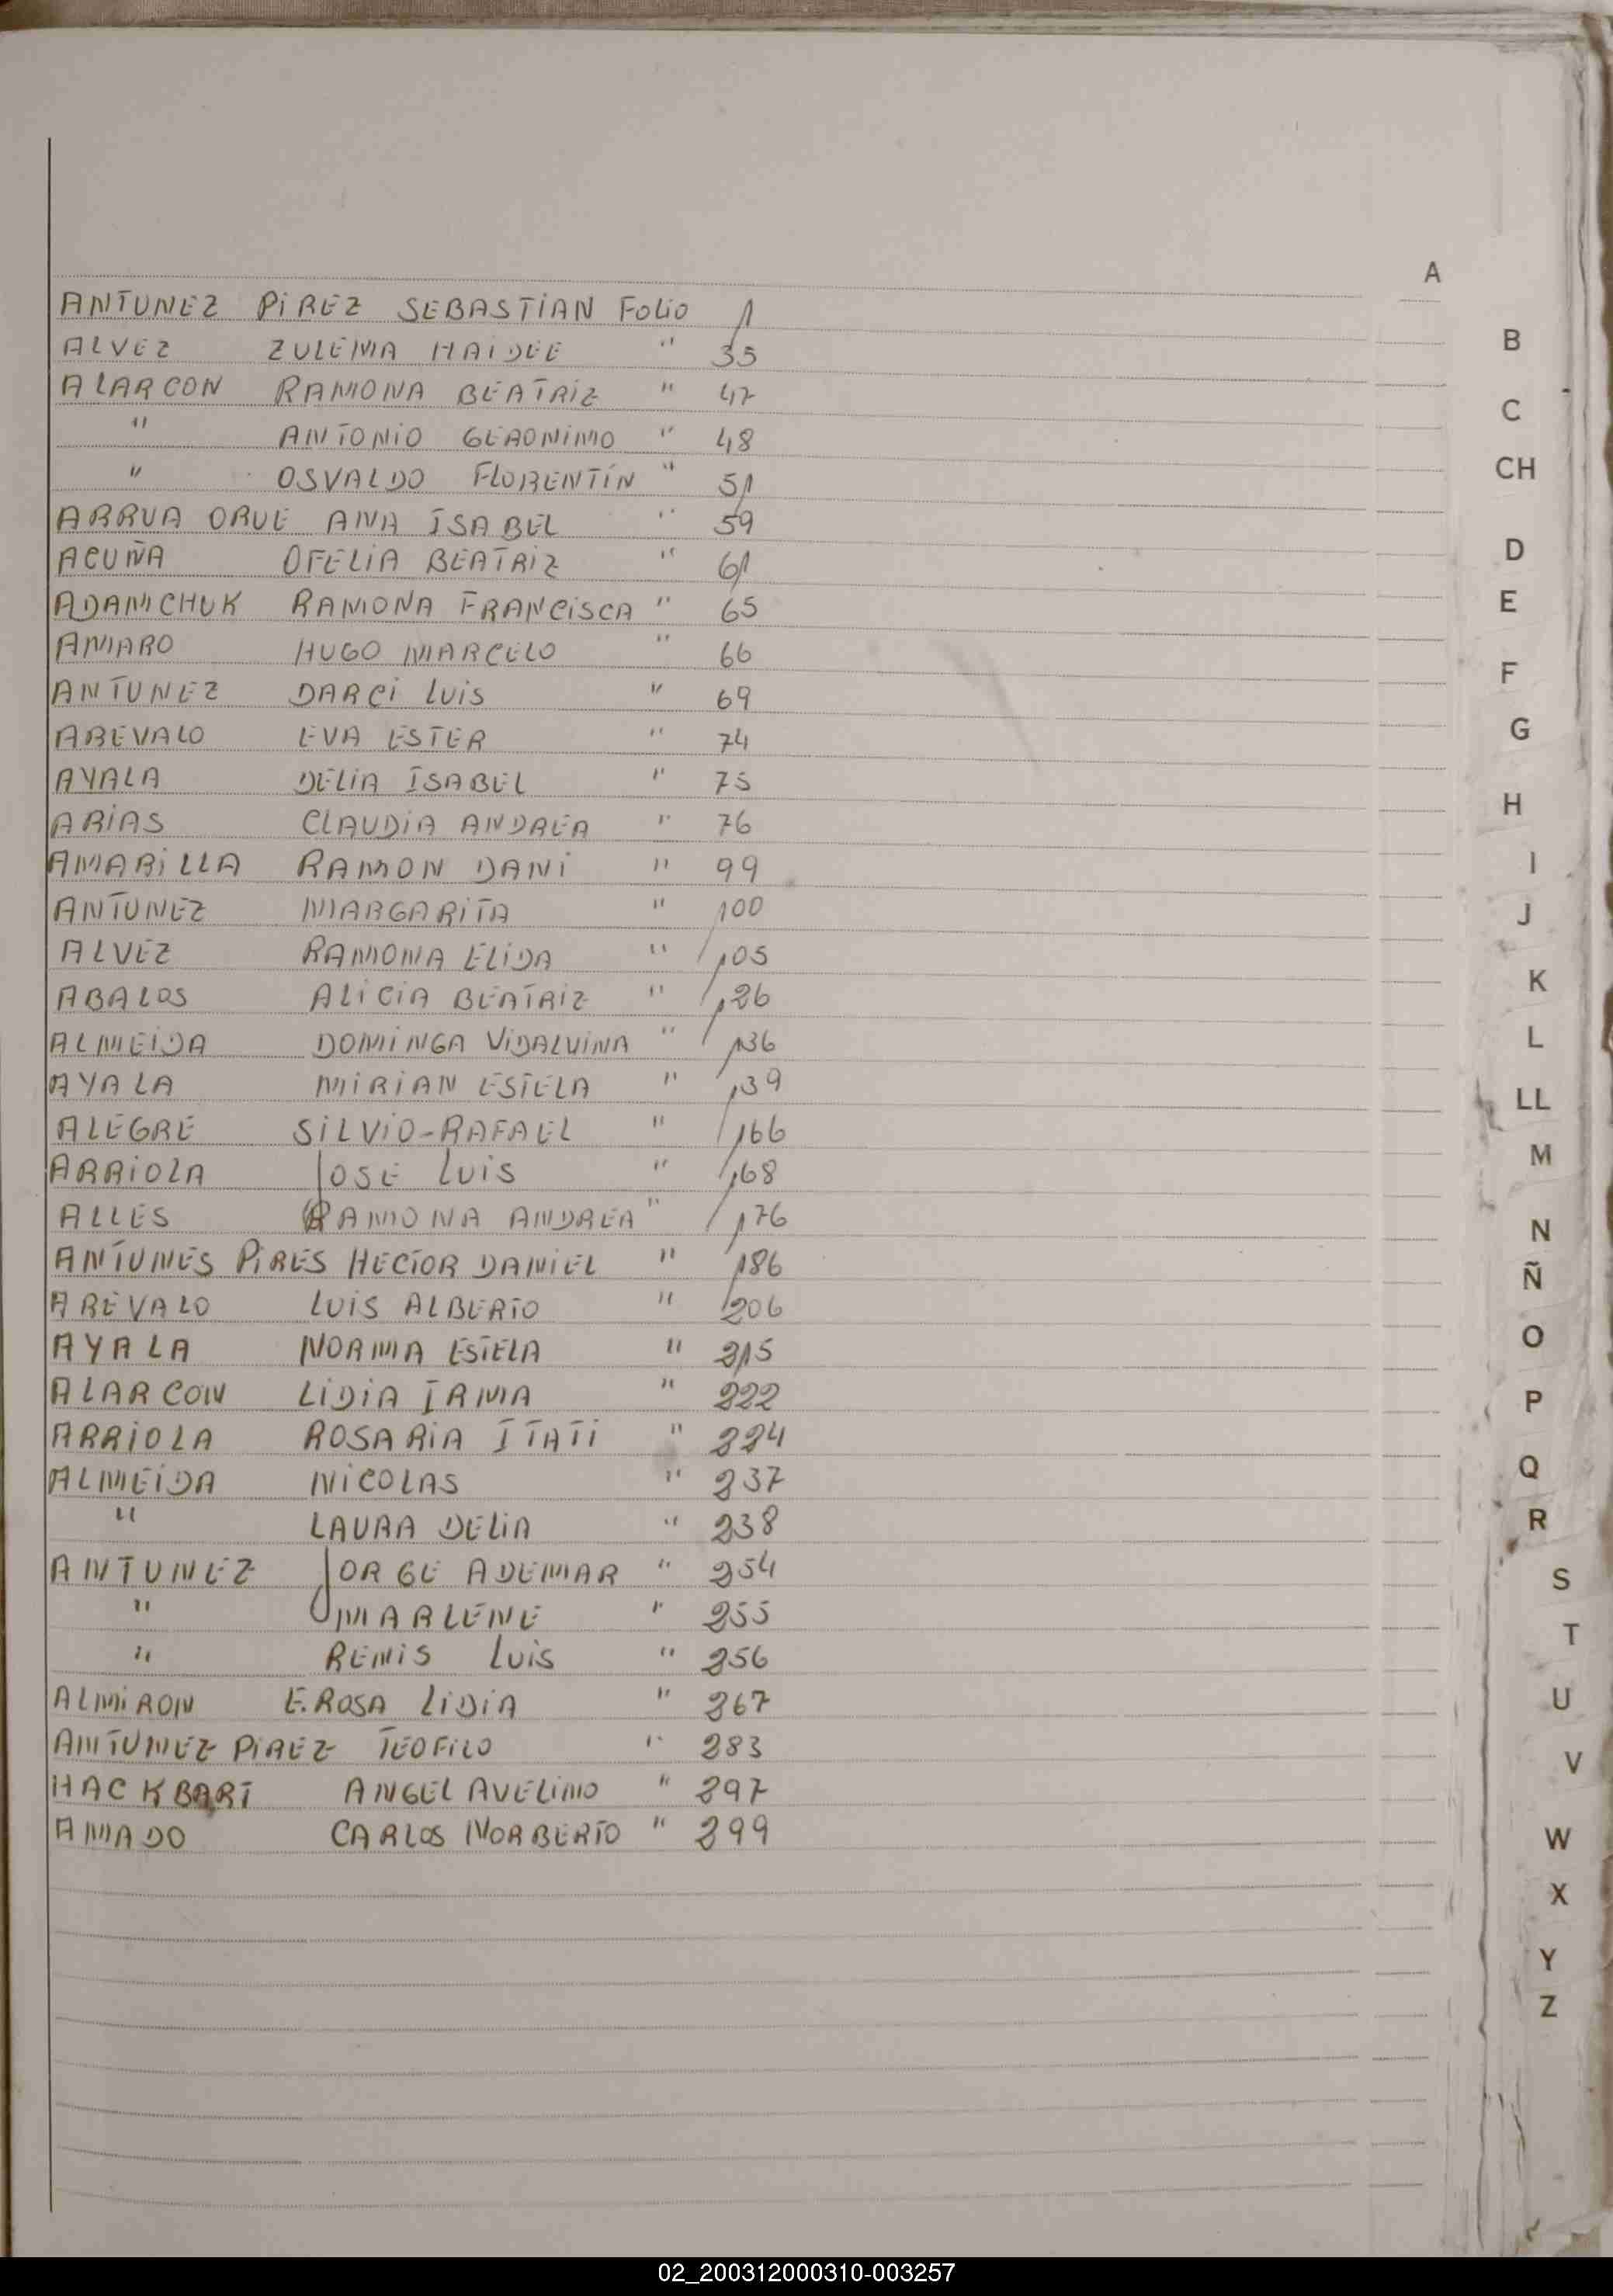 A
ANTUNEZ PIREZ SEBASTIAN Folio 1
ALVEZ ZULEMA HAIDEE " 35
ALARCON RAMONA BEATRIZ " 47
" ANTONIO GERONIMO " 48
" OSVALDO FLORENTÍN " 51
ARRUA ORUE ANA ISABEL " 59
ACUÑA OFELIA BEATRIZ " 61
ADAMCHUK RAMONA FRANCISCA " 65
AMARO HUGO MARCELO " 66
ANTUNEZ DARCI LUIS " 69
AREVALO EVA ESTER " 74
AYALA DELIA ISABEL " 75
ARIAS CLAUDIA ANDREA " 76
AMARILLA RAMON DANI " 99
ANTUNEZ MARGARITA " 100
ALVEZ RAMONA ELIDA " 105
ABALOS ALICIA BEATRIZ " 126
ALMEIDA DOMINGA VIDALVINA " 136
AYALA MIRIAN ESTELA " 139
ALEGRE SILVIO-RAFAEL " 166
ARRIOLA JOSE LUIS " 168
ALLES RAMONA ANDREA " 176
ANTUNES PIRES HECTOR DANIEL " 186
AREVALO LUIS ALBERTO " 206
AYALA NORMA ESTELA " 215
ALARCON LIDIA IRMA " 222
ARRIOLA ROSARIA ITATI " 224
ALMEIDA NICOLAS " 237
" LAURA DELIA " 238
ANTUNEZ JORGE ADEMAR " 254
" MARLENE " 255
" REMIS LUIS " 256
ALMIRON E. ROSA LIDIA " 267
ANTUNEZ PIREZ TEOFILO " 283
HACKBART ANGEL AVELINO " 297
AMADO CARLOS NORBERTO " 299
B
C
CH
D
E
F
G
H
I
J
K
L
LL
M
N
Ñ
O
P
Q
R
S
T
U
V
W
X
Y
Z
02_200312000310-003257